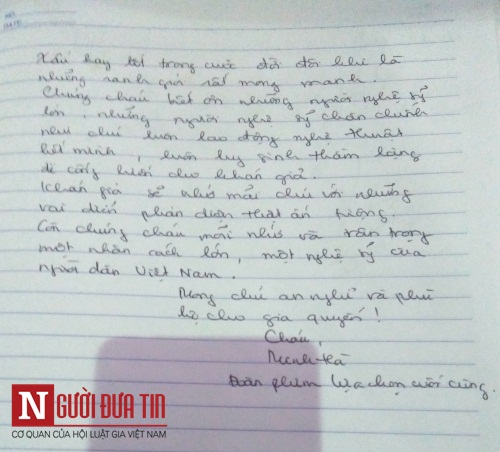 Xấu hay tốt trong cuộc đời đôi khi là
những ranh giới rất mong manh.
Chúng cháu biết ơn những người nghệ sỹ
lớn, những người nghệ sỹ chân chính
như chú luôn lao động nghệ thuật
hết mình, luôn hy sinh thầm lặng
để cống hiến cho khán giả.
Khán giả sẽ nhớ mãi chú với những
vai diễn phản diện thật ấn tượng.
Còn chúng cháu mãi nhớ và trân trọng
một nhân cách lớn, một nghệ sỹ của
người dân Việt Nam.
Mong chú an nghỉ và phù
hộ cho gia quyến!
Cháu,
Minh Hà
Đoàn phim Lựa chọn cuối cùng.
NGƯỜI ĐƯA TIN
CƠ QUAN CỦA HỘI LUẬT GIA VIỆT NAM